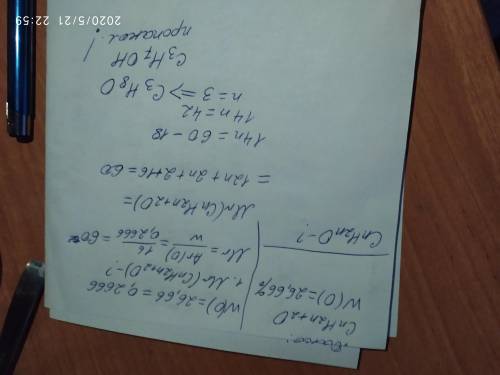 2020/5/21 22:59
CnH2n+2O
W(O)=26,66%
CnH2nO-?
W(O)=26,66=0,2666
1. Mr(CnH2n+2O)-?
Mr = Ar(O)/w = 16/0,2666 = 60
Mr(CnH2n+2O)=
=12n+2n+2+16=60
14n=60-18
14n=42
n=3 => C3H8O
C3H7OH
пропанол!